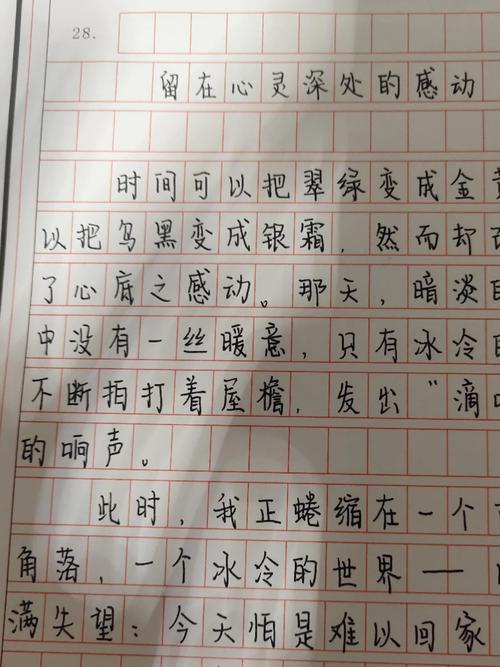 28.
留在心灵深处的感动
时间可以把翠绿变成金
以把乌黑变成银霜，然而却
了心底之感动。那天，暗淡
中没有一丝暖意，只有冰冷
不断拍打着屋檐，发出“滴
的响声。
此时，我正蜷缩在一个
角落，一个冰冷的世界——
满失望：今天怕是难以回家